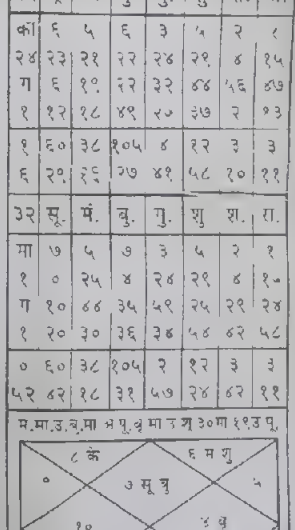 का ६ ५ ६ ३ ५ २ १
२४ २३ २१ २२ २४ २९ ४ १५
ग ६ १९ २२ ३२ ४४ ५६ ४७
१ १२ १८ ४९ २० ३७ २ १३
१ ६० ३८ १०५ ४ १२ ३ ३
६ २९ २६ २७ ४१ ५८ १० ११
३२ सू. मं. बु. गु. शु श. रा.
मा ७ ५ ७ ३ ५ २ १
१ ० २५ ४ २४ २९ ४ १५
ग १० ४४ ३५ ५९ २५ २९ २४
१ २० ३० ३६ ३४ ५४ ४२ ५८
० ६० ३८ १०५ २ १२ ३ ३
५२ ४२ १८ ३१ ५७ २४ ४२ ११
८ के ६ म शु
३ सू बु
५
१०
४ बृ